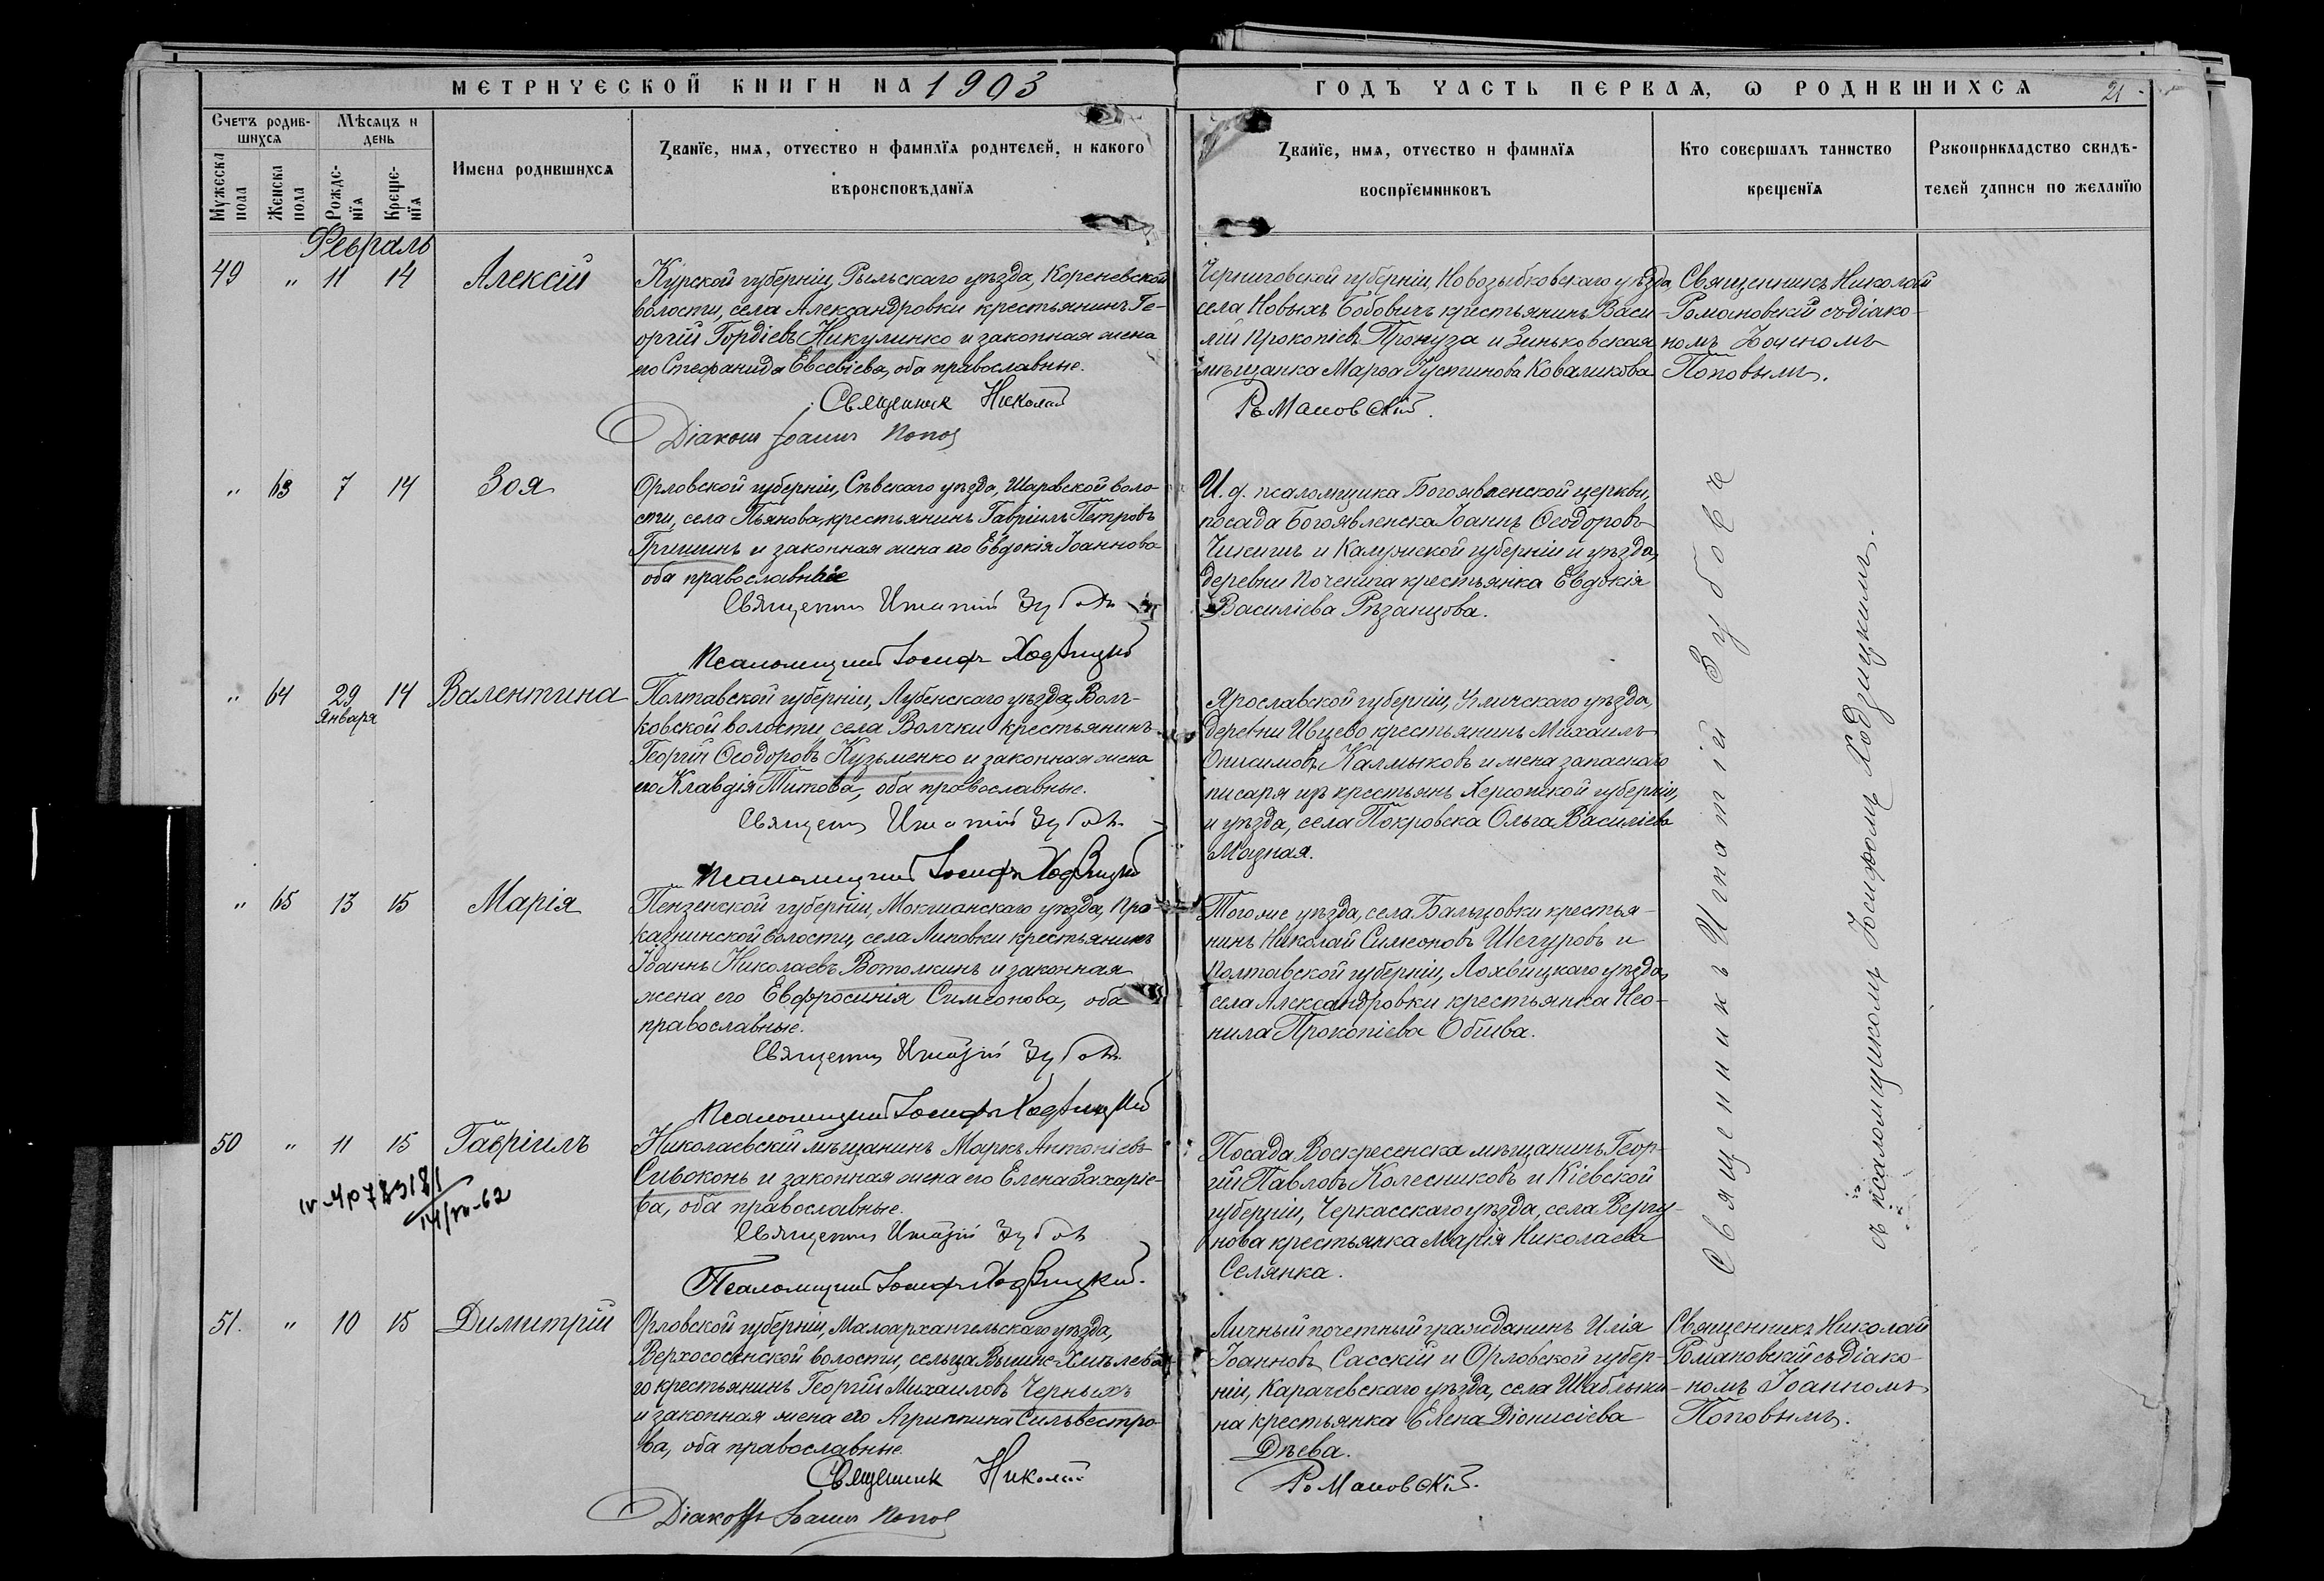 МЕТРИЧЕСКОЙ КНИГИ НА 1903
ГОДЪ ЧАСТЬ ПЕРВАЯ, Ѡ РОДИВШИХСЯ
21
Счетъ родив-
шихся
Мѣсяцъ и
день
Мужеска
пола
Женска
пола
Рожде-
нія
Креще-
нія
Имена родившихся
Званїе, имя, отчество и фамилїя родителей, и какого
вѣроисповѣданїя
Званїе, имя, отчество и фамилїя
воспрїемниковъ
Кто совершалъ таинство
крещенїя
Рукоприкладство свидѣ-
телей записи по желанїю
Февраль
49 " 11 14 Алексій
Курской губерніи, Рыльскаго уѣзда, Кореневской
волости, села Александровки крестьянинъ Ге-
оргій Гордіевъ Никулинко и законная жена
его Стефанида Евсевіева, оба православные.
Священник Николай
Діаконъ Іоаннъ Попов
Черниговской губерніи, Новозыбковскаго уѣзда,
села Новыхъ Бобовичъ крестьянинъ Васи-
лій Прокопіевъ Пронуза и Зиньковская
мѣщанка Марѳа Устинова Коваликова
Романовскій.
Священникъ Николай
Романовскій съ діако-
номъ Іоанномъ
Поповымъ.
" 63 7 14 Зоя
Орловской губерніи, Сѣвскаго уѣзда, Шаровской воло-
сти, села Пьянова, крестьянинъ Гавріилъ Петровъ
Гришинъ и законная жена его Евдокія Іоаннова
оба православные
Священник Игнатій Зубовъ
Псаломщик Іосифъ Ходзицкій
И. д. псаломщика Богоявленской церкви,
посада Богоявленска Іоаннъ Ѳеодоровъ
Чижишъ и Калужской губерніи и уѣзда,
деревни Поченига крестьянка Евдокія
Василіева Рѣзанцова.
" 64 29 14 Валентина
Января
Полтавской губерніи, Лубенскаго уѣзда, Волч-
ковской волости села Волчки крестьянинъ
Георгій Ѳеодоровъ Кузьменко и законная жена
его Клавдія Титова, оба православные.
Священник Игнатій Зубовъ
Псаломщик Іосифъ Ходзицкій
Ярославской губерніи, Угличскаго уѣзда,
деревни Ивцево крестьянинъ Михаилъ
Онисимовъ Калмыковъ и жена запаснаго
писаря изъ крестьянъ Херсонской губерніи,
и уѣзда, села Покровска Ольга Василіева
Мазная.
" 65 13 15 Марія
Пензенской губерніи, Мокшанскаго уѣзда, Про-
казнинской волости, села Липовки крестьянинъ
Іоаннъ Николаевъ Вотолкинъ и законная
жена его Евфросинія Симеонова, оба
православные.
Священник Игнатій Зубовъ
Псаломщик Іосифъ Ходзицкій
Тогоже уѣзда, села Бальцовки крестья-
нинъ Николай Симеоновъ Шегуровъ и
Полтавской губерніи, Лохвицкаго уѣзда,
села Александровки крестьянка Нео-
нила Прокопіева
Священникъ Игнатій Зубовъ
съ псаломщикомъ Іосифомъ Ходзицкимъ.
50 " 11 15 Гавріилъ
Николаевскій мѣщанинъ Маркъ Антоніевъ
Сивоконь и законная жена его Елена Захаріе-
ва, оба православные.
Священник Игнатій Зубовъ
Псаломщик Іосифъ Ходзицкій.
Посада Воскресенска мѣщанинъ Геор-
гій Павловъ Колесниковъ и Кіевской
губерніи, Черкасскаго уѣзда, села Вергу-
нова крестьянка Марія Николаева
Селянка.
51. " 10 15 Димитрій
Орловской губерніи, Малоархангельскаго уѣзда,
Верхососенской волости, сельца Хмѣлева-
го крестьянинъ Георгій Михаиловъ Черныхъ
и законная жена его Агриппина Сильвестро-
ва, оба православные.
Священник Николай
Діаконъ Іоаннъ Попов
Личный почетный гражданинъ Илія
Іоанновъ Сасскій и Орловской губер-
ніи, Карачевскаго уѣзда, села Шаблыки-
на крестьянка Елена Діонисіева
Дѣева.
Романовскій.
Священникъ Николай
Романовскій съ діако-
номъ Іоанномъ
Поповымъ.